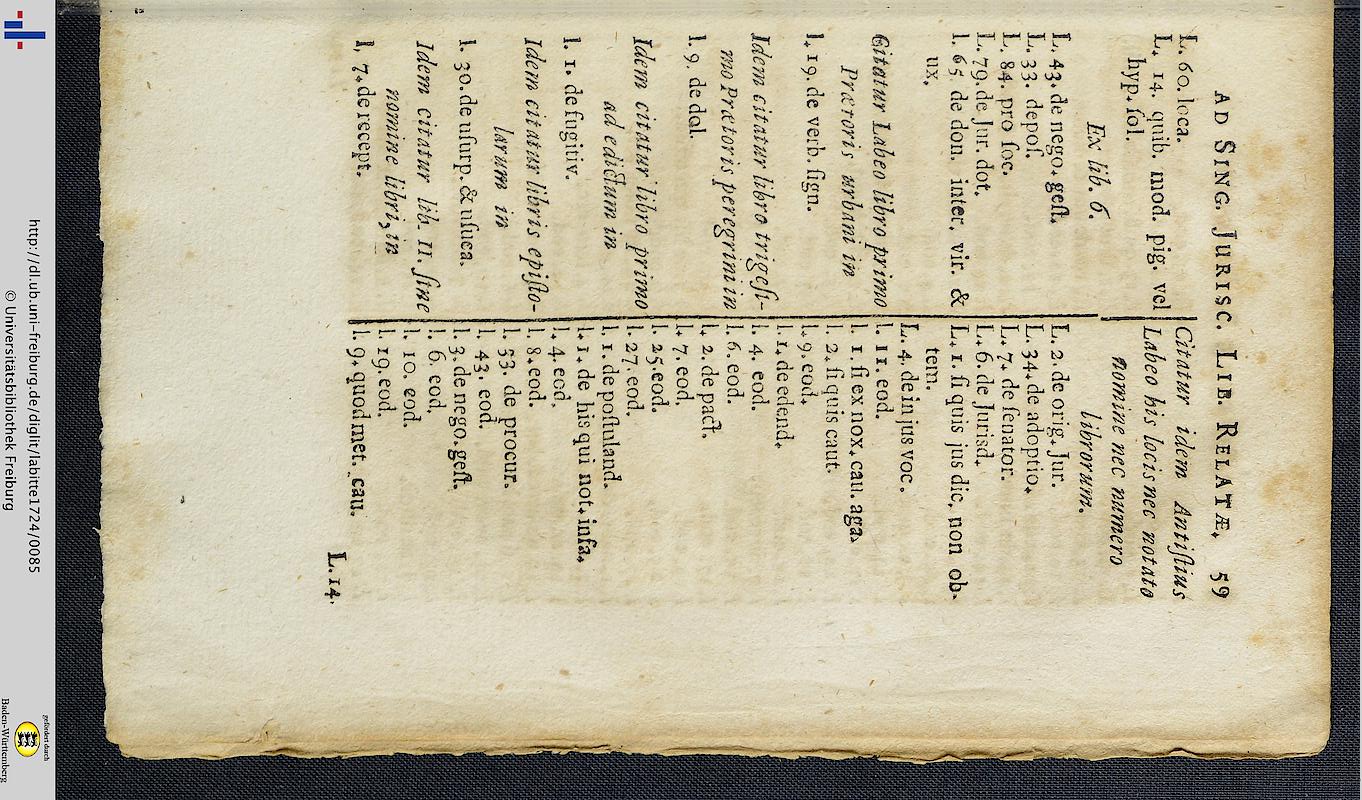 AD SING. JURISC. LIB. RELATÆ. 59
L. 60. loca.
L. 14. quib. mod. pig. vel
hyp. ſol.
Ex lib. 6.
L. 43. de nego. geſt.
L. 33. depoſ.
L. 84. pro ſoc.
L. 79. de Jur. dot.
l. 65. de don. inter. vir. &
ux.
Citatur Labeo libro primo
Prætoris urbani in
l. 19. de verb. ſign.
Idem citatur libro trigeſi-
mo Prætoris peregrini in
l. 9. de dol.
Idem citatur libro primo
ad edictum in
l. 1. de fugitiv.
Idem citatur libris epiſto-
larum in
l. 30. de uſurp. & uſuca.
Idem citatur lib. II. ſine
nomine libri, in
l. 7. de recept.
Citatur idem Antiſtius
Labeo his locis nec notato
nomine nec numero
librorum.
L. 2. de orig. Jur.
L. 34. de adoptio.
L. 7. de ſenator.
L. 6. de Jurisd.
L. 1. ſi quis jus dic. non ob-
tem.
L. 4. de in jus voc.
l. 11. eod.
l. 1. ſi ex nox. cau. aga.
l. 2. ſi quis caut.
l. 9. eod.
l. 1. de edend.
l. 4. eod.
l. 6. eod.
l. 2. de pact.
l. 7. eod.
l. 25. eod.
l. 27. eod.
l. 1. de poſtuland.
l. 1. de his qui not. infa.
l. 4. eod.
l. 8. eod.
l. 33. de procur.
l. 43. eod.
l. 3. de nego. geſt.
l. 6. eod.
l. 10. eod.
l. 19. eod.
l. 9. quod met. cau.
L. 14.
http://dl.ub.uni-freiburg.de/diglit/labitte1724/0085
© Universitätsbibliothek Freiburg
gefördert durch
Baden-Württemberg